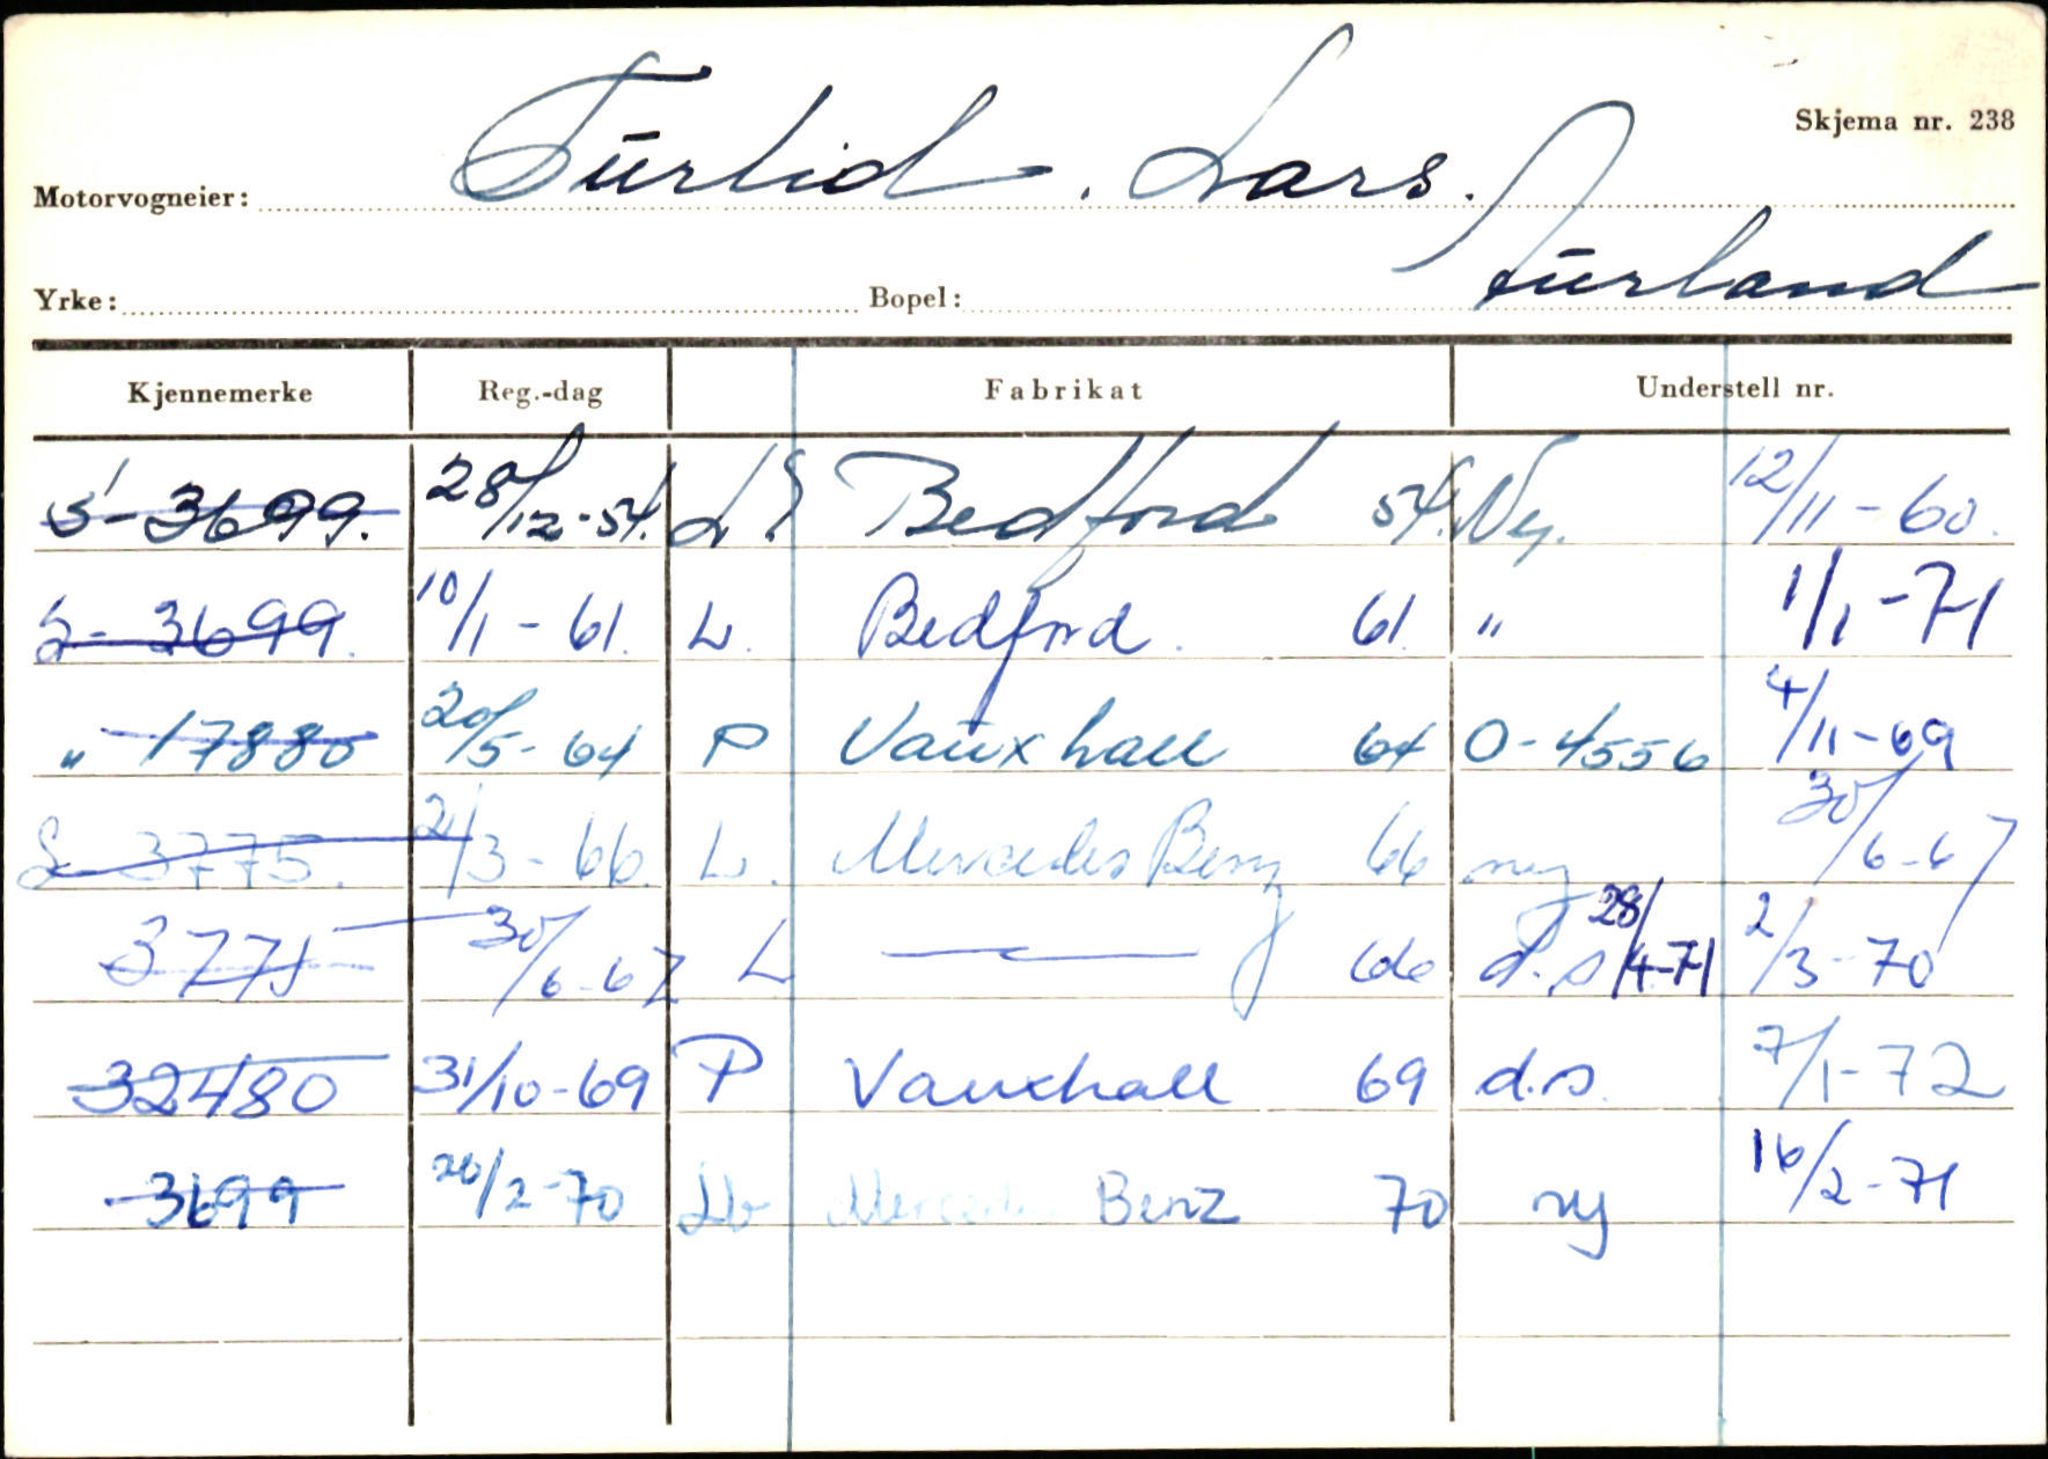 Skjema nr. 238
Motorvogneier: Turlid. Lars.
Yrke: Bopel: Aurland
Kjennemerke Reg.-dag Fabrikat Understell nr.
S-3699. 28/12-54. L Bedford 54. Ny. 12/11-60.
S-3699. 10/1-61. L. Bedford. 61. " 1/1-71
" -17880 20/5-64 P Vauxhall 64 O-4556 4/11-69
S-3775. 2/3-66. L. Mercedes Benz 66 ny 30/6-67
3775 30/6-67 L — 66 d.s 28/4-71 2/3-70
32480 31/10-69 P Vauxhall 69 d.s. 7/1-72
-3699 26/2-70 Lb Mercedes Benz 70 ny 16/2-71